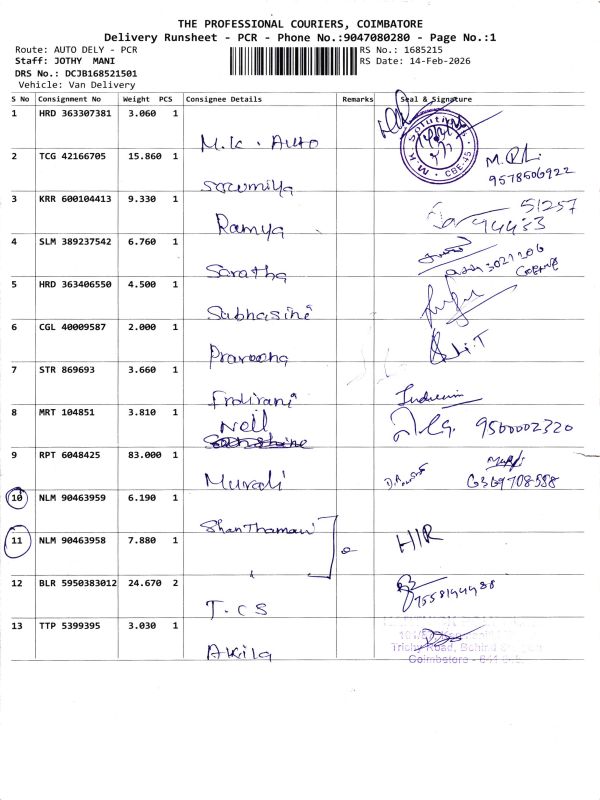 THE PROFESSIONAL COURIERS, COIMBATORE
Delivery Runsheet - PCR - Phone No.:9047080280 - Page No.:1
Route: AUTO DELY - PCR
RS No.: 1685215
Staff: JOTHY MANI
RS Date: 14-Feb-2026
DRS No.: DCJB168521501
Vehicle: Van Delivery
S No Consignment No Weight PCS Consignee Details Remarks Seal & Signature
1 HRD 363307381 3.060 1
M.K. Auto
Solutions
K.M.
CBE-45
2 TCG 42166705 15.860 1
Sowmiya
9578506922
3 KRR 600104413 9.330 1
Ramya
51257
94453
4 SLM 389237542 6.760 1
Saratha
5 HRD 363406550 4.500 1
Subhasini
6 CGL 40009587 2.000 1
7 STR 869693 3.660 1
Indirani
8 MRT 104851 3.810 1
Nell
9500002320
9 RPT 6048425 83.000 1
Murali
10 NLM 90463959 6.190 1
11 NLM 90463958 7.880 1
HIR
12 BLR 5950383012 24.670 2
T.C.S
13 TTP 5399395 3.030 1
Akila
Trichy Road, Behind
Coimbatore - 641